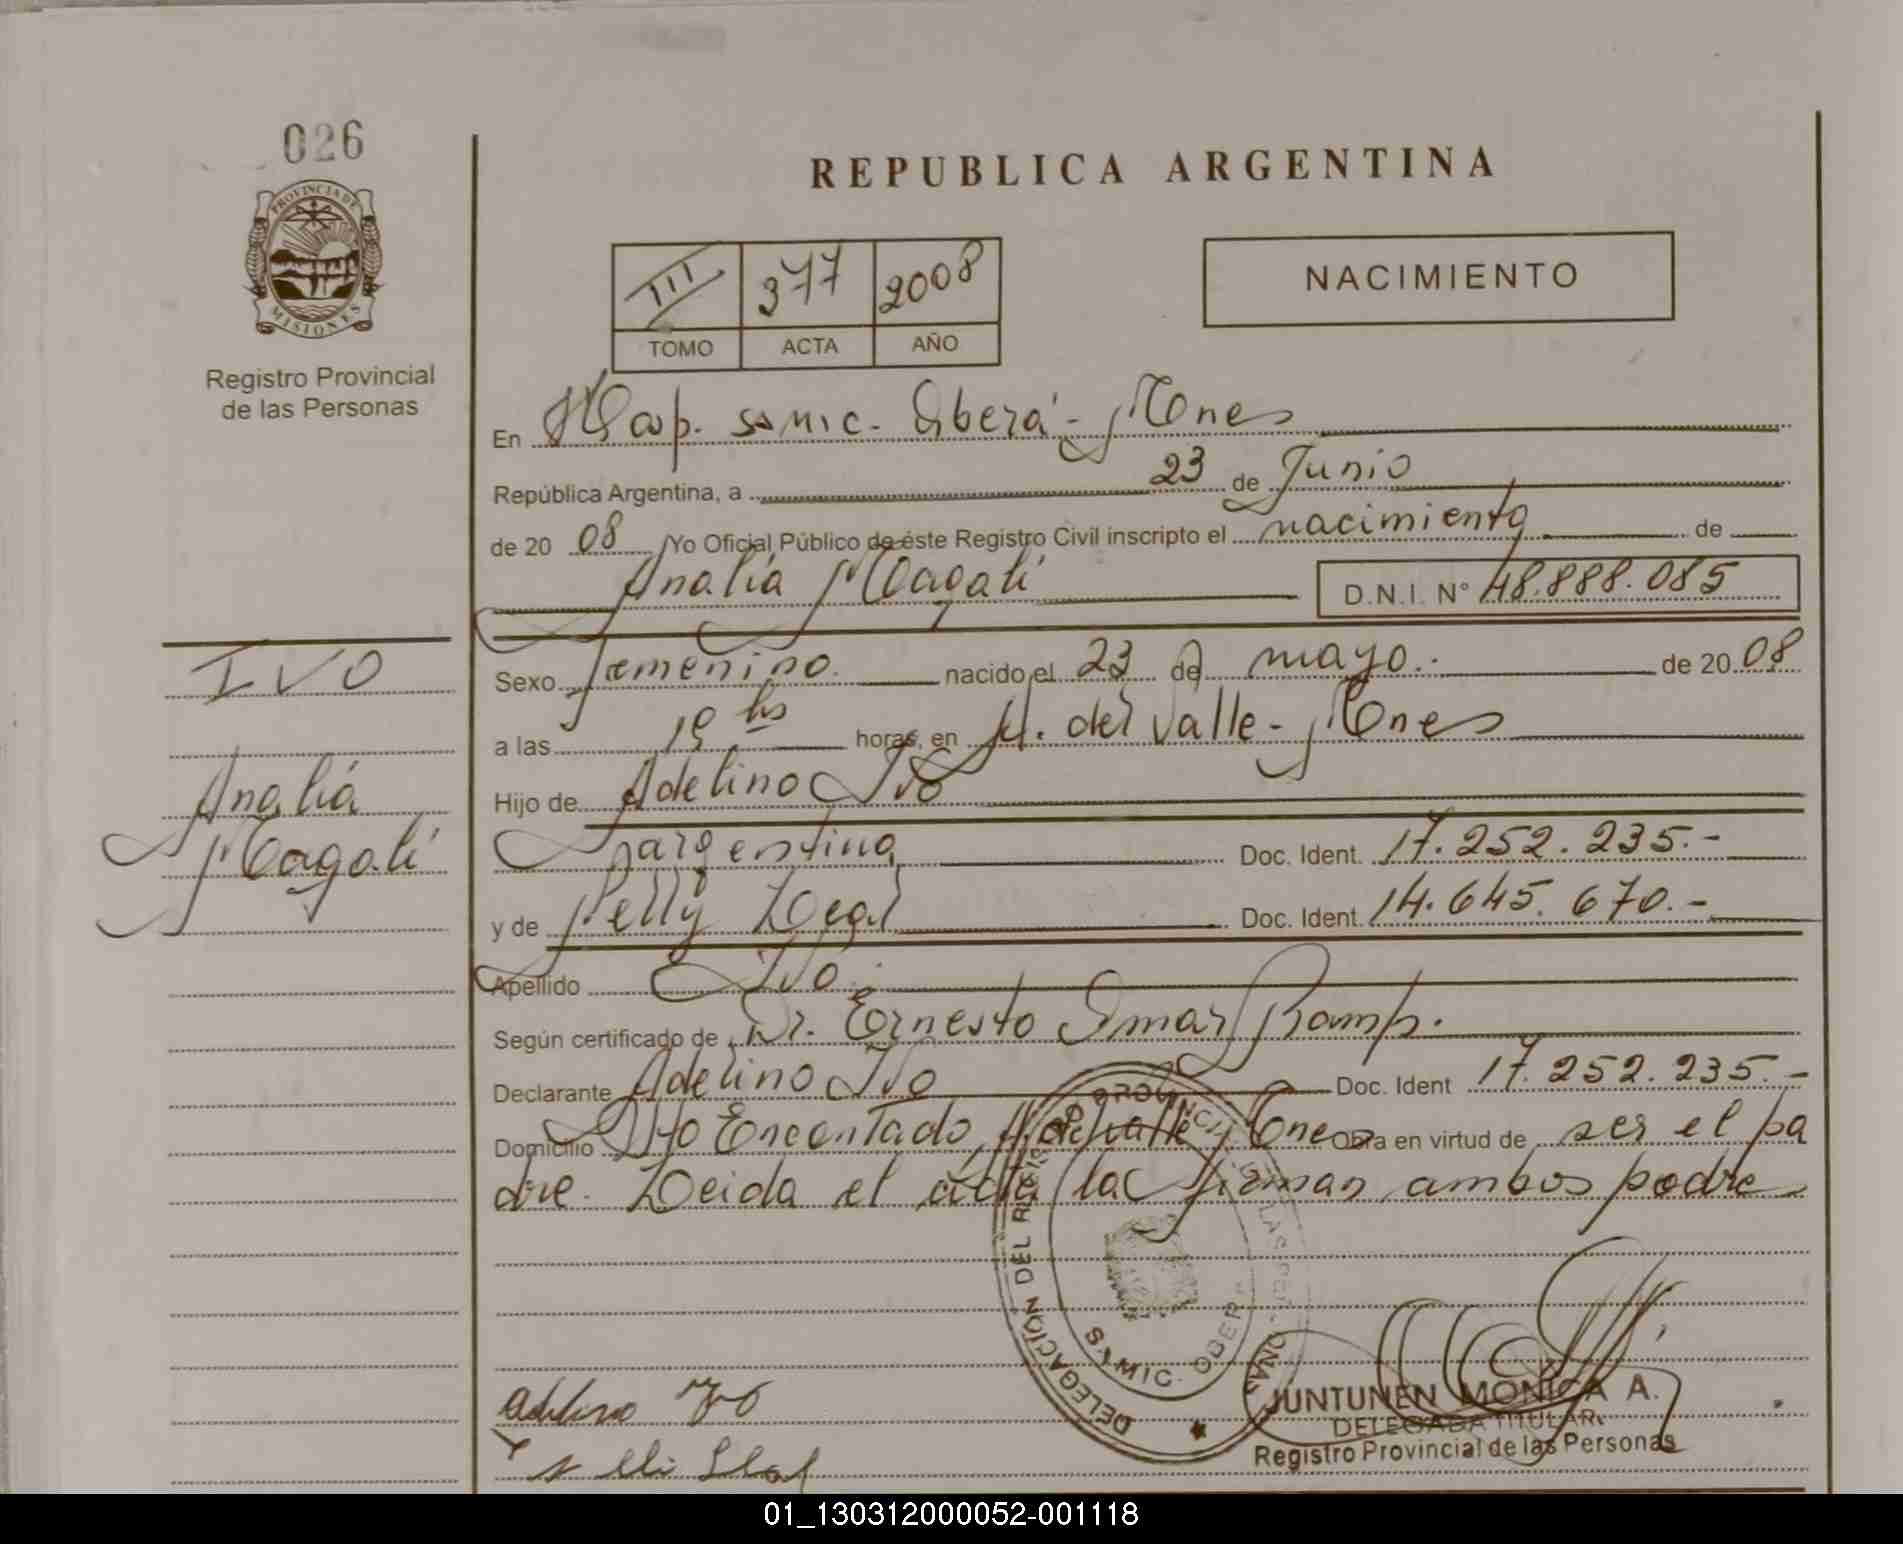 026
PROVINCIA DE
MISIONES
Registro Provincial
de las Personas
REPUBLICA ARGENTINA
III 377 2008
TOMO ACTA AÑO
NACIMIENTO
En Hosp. samic. Oberá - Mnes
República Argentina, a 23 de Junio
de 20 08 Yo Oficial Público de éste Registro Civil inscripto el nacimiento de
Analía Magalí D.N.I. N° 48.888.085
IVO
Analía
Magalí
Sexo femenino. nacido el 23 de mayo. de 20 08
a las 19 hs horas, en A. del Valle - Mnes
Hijo de Adelino Ivo
argentina Doc. Ident. 17.252.235.-
y de Nelly Legal Doc. Ident. 14.645.670.-
Apellido Ivo.
Según certificado de Dr. Ernesto Omar Ramp.
Declarante Adelino Ivo Doc. Ident 17.252.235.-
Domicilio Aº Encantado, A. del Valle Mnes Obra en virtud de ser el pa
dre. Leida el acta la firman ambos padre
DELEGACIÓN DEL REG. PROVINCIAL DE LAS PERSONAS
SAMIC. OBERA
Adelino Ivo
JUNTUNEN MONICA A.
DELEGADA TITULAR
Registro Provincial de las Personas
01_130312000052-001118